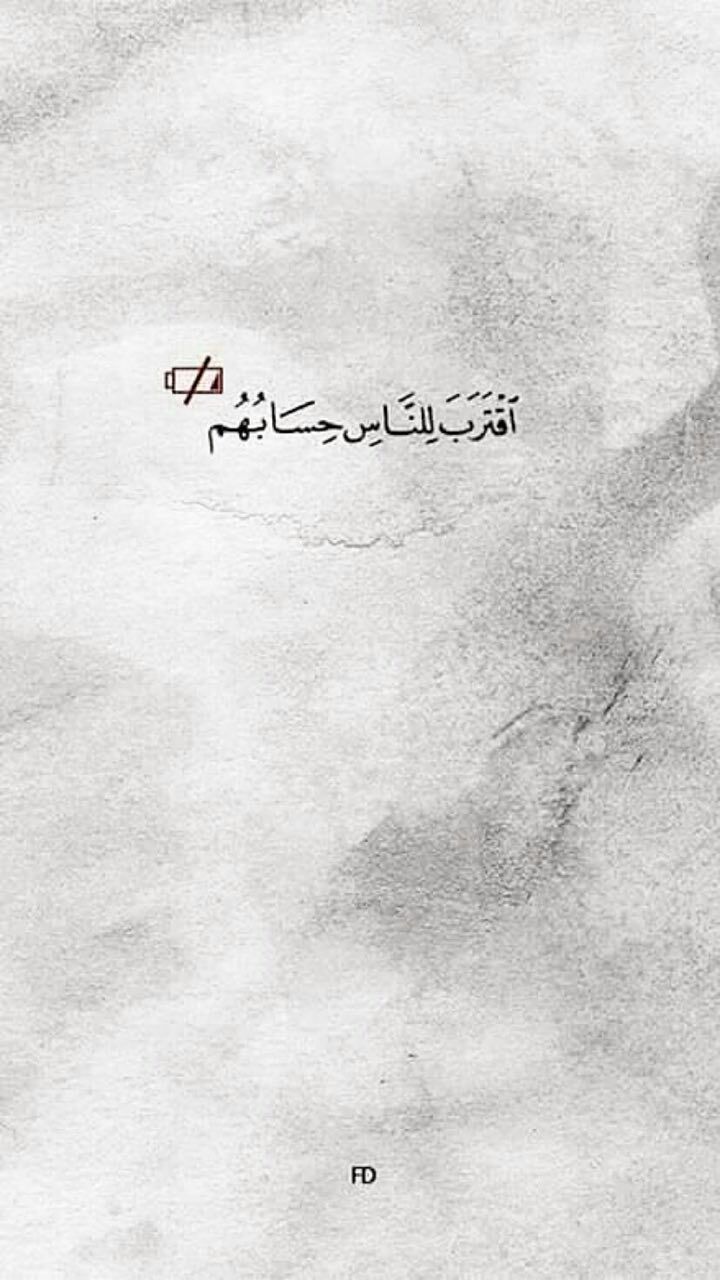 ٱقۡتَرَبَ لِلنَّاسِ حِسَابُهُم
FD